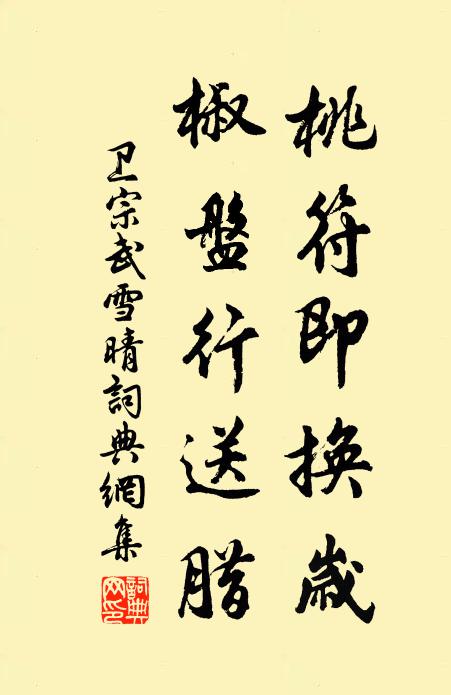 桃符即换歲
椒盤行送腊
卫宗武雪晴詞典網集
詞典網印